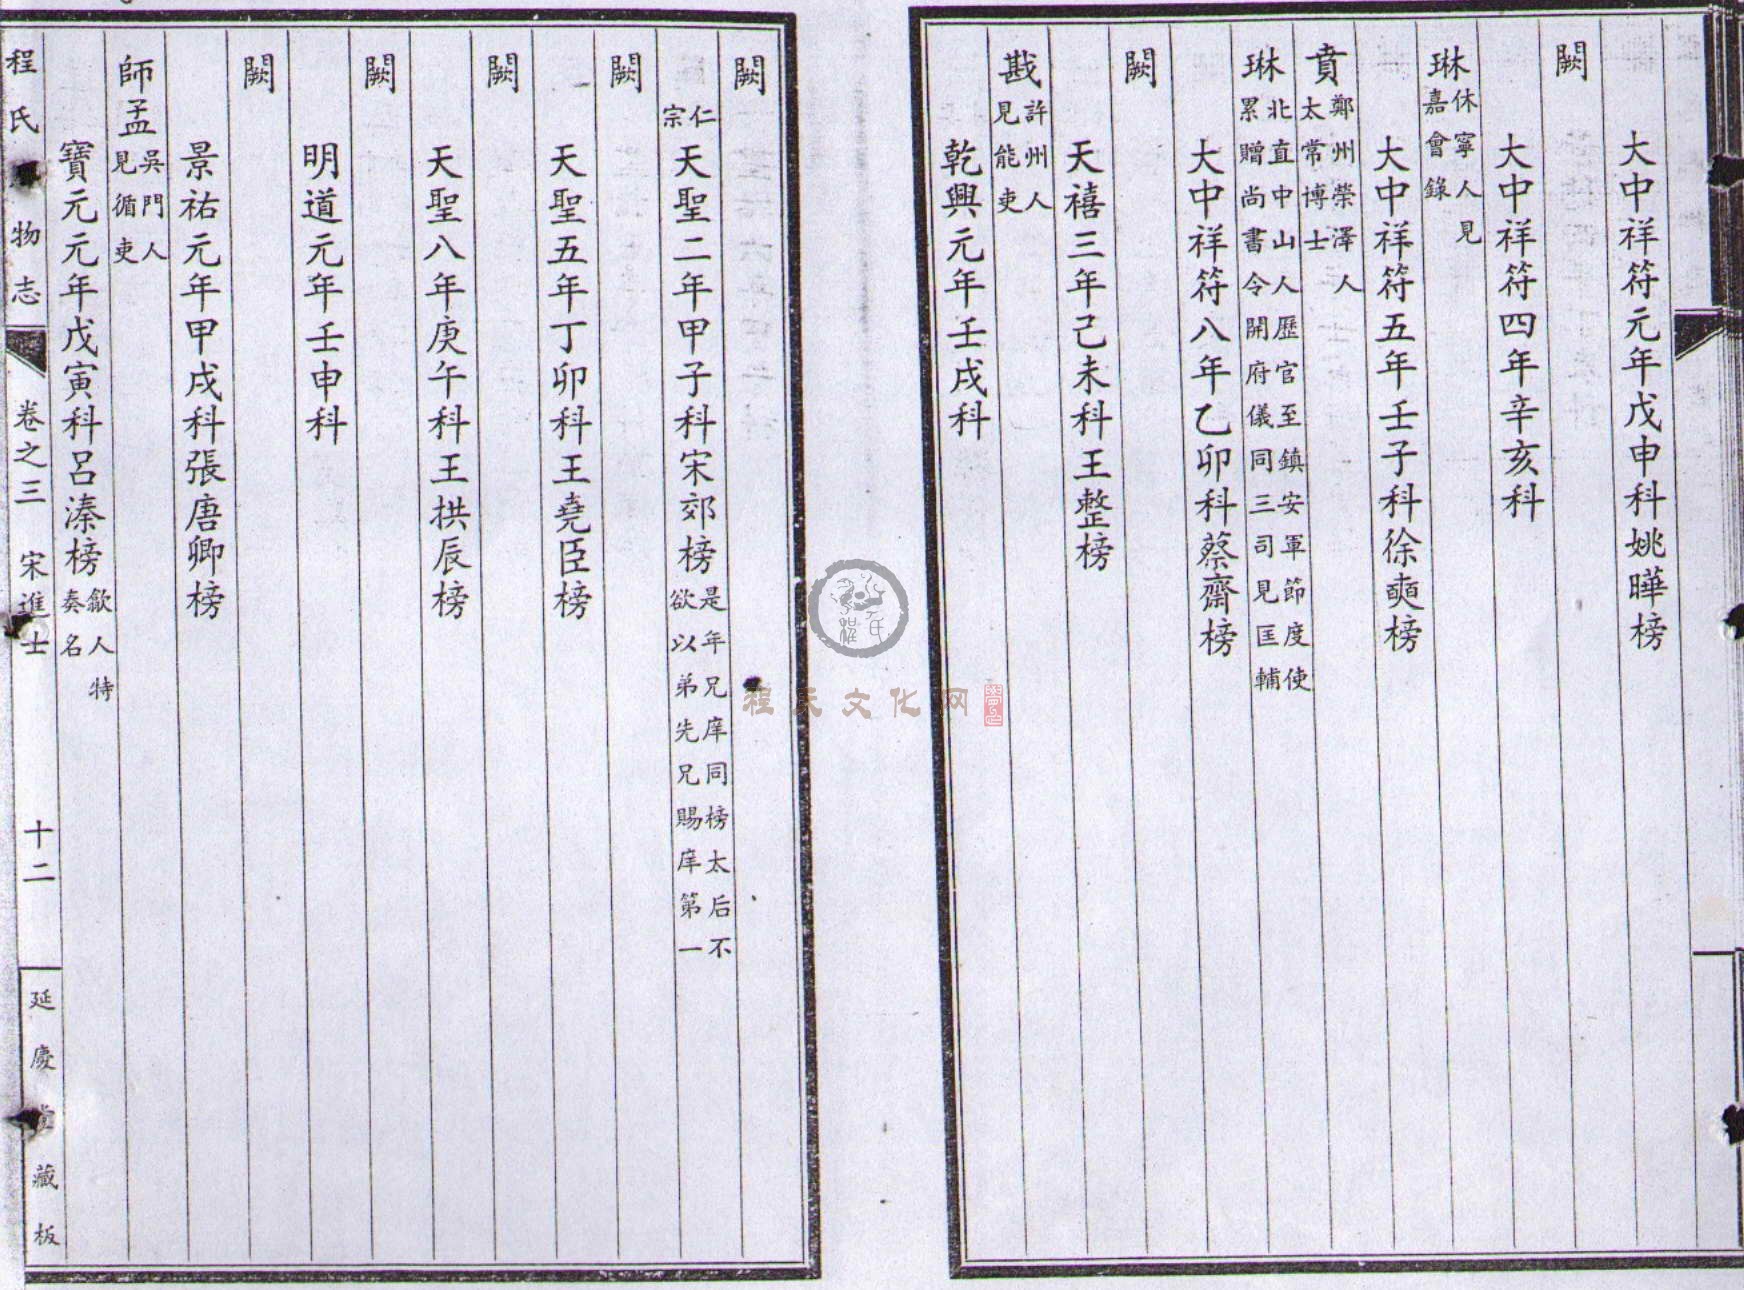 大中祥符元年戊申科姚曄榜
闕
大中祥符四年辛亥科
琳休寧人見嘉會錄
大中祥符五年壬子科徐奭榜
賁鄭州榮澤人太常博士
琳北直中山人歷官至鎮安軍節度使累贈尚書令開府儀同三司見匡輔
大中祥符八年乙卯科蔡齋榜
闕
天禧三年己未科王整榜
戡許州人見能吏
乾興元年壬戌科
闕
仁宗天聖二年甲子科宋郊榜是年兄庠同榜太后不欲以弟先兄賜庠第一
闕
天聖五年丁卯科王堯臣榜
闕
天聖八年庚午科王拱辰榜
闕
明道元年壬申科
闕
景祐元年甲戌科張唐卿榜
師孟吳門人見循吏
寶元元年戊寅科呂溱榜歙人特奏名
程氏物志 卷之三 宋進士 十二 延慶堂藏板
程氏文化网